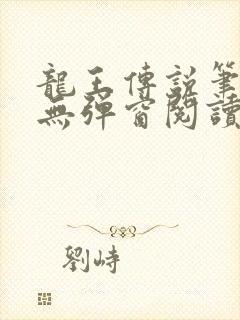 龍王傳說筆
無彈窗閱讀
劉峙